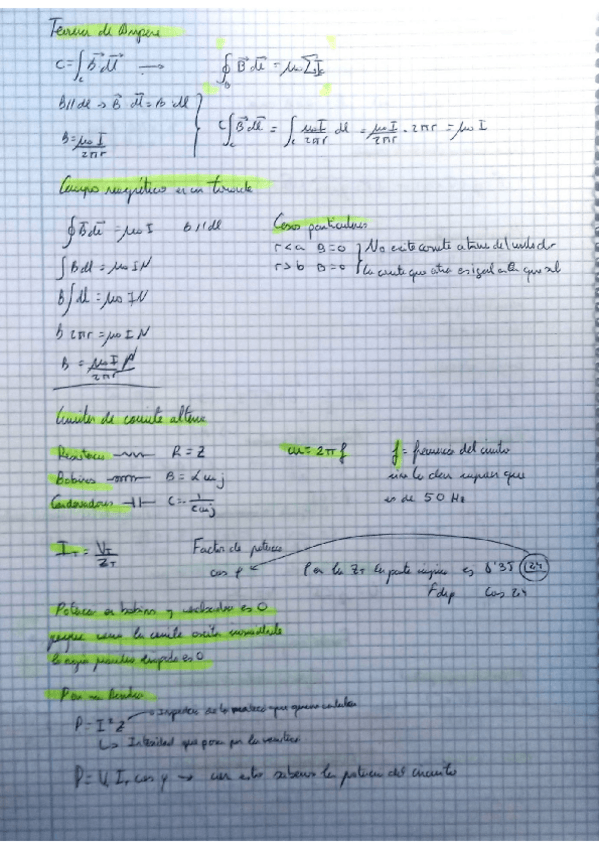 Teorema de Ampere
C = ∫c B⃗ dl⃗ → ∮ B⃗ dl⃗ = μ₀ Σ I
B // dl → B⃗ dl⃗ = B dl
B = μ₀ I / 2πr
C ∫c B⃗ dl⃗ = ∫c μ₀ I / 2πr dl = μ₀ I / 2πr · 2πr = μ₀ I
Campo magnético en un toroide
∮ B⃗ dl⃗ = μ₀ I B // dl
∫ B dl = μ₀ I N
B ∫ dl = μ₀ I N
B 2πr = μ₀ I N
B = μ₀ I N / 2πr
Casos particulares
r < a B = 0 } No existe corriente a traves del
r > b B = 0 } la corriente que entra es igual a la que sale
Circuitos de corriente alterna
Resistencia R = Z
Bobinas B = L ω j
Condensadores C = 1 / C ω j
ω = 2π f
f = frecuencia del circuito
si no la dan que
es de 50 Hz
I_T = V_T / Z_T
Factor de potencia
cos φ
Por la Z_T la parte es 6'35 24
Fdp cos 24
Potencia en bobina y condensador es 0
porque como la corriente oscila
la energia es 0
Por una Resistencia
P = I² Z → Impedancia de la resistencia que queremos calcular
↳ Intensidad que pasa por la resistencia
P = V I cos φ → con esto sabemos la potencia del circuito